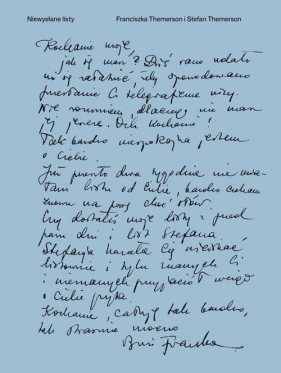 Niewysłane listy
Franciszka Themerson i Stefan Themerson
Kochanie moje,
jak się masz? Dziś rano udało
mi się załatwić żeby spowodowano
przesłanie Ci telegraficznie wizy.
Nie rozumiem, dlaczego nie masz
jej jeszcze. Och kochanie!
Tak bardzo niespokojna jestem
o Ciebie.
Już ponad dwa tygodnie nie mia-
łam listu od Ciebie, bardzo czekam
znowu na parę choć słów.
Czy dostałeś moje listy z przed
paru dni i list Stefana.
Stefania kazała Cię uściskać
i tylu znanych Ci
i nieznanych przyjaciół wciąż
o Ciebie pyta.
Kochanie, całuję tak bardzo,
tak strasznie mocno
Franka